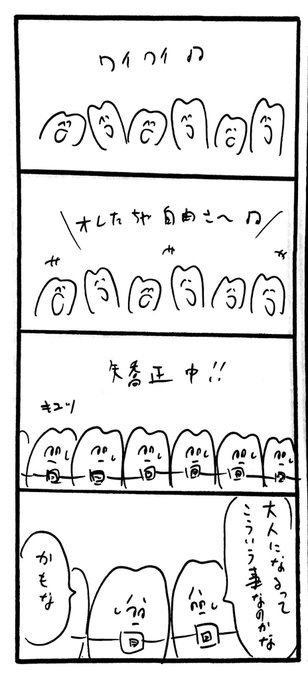 ワイワイ♫
オレたちゃ自由さ〜♫
ザ
ザ
ザ
矯正中!!
キュッ
大人になるって
こういう事なのかな
かもな